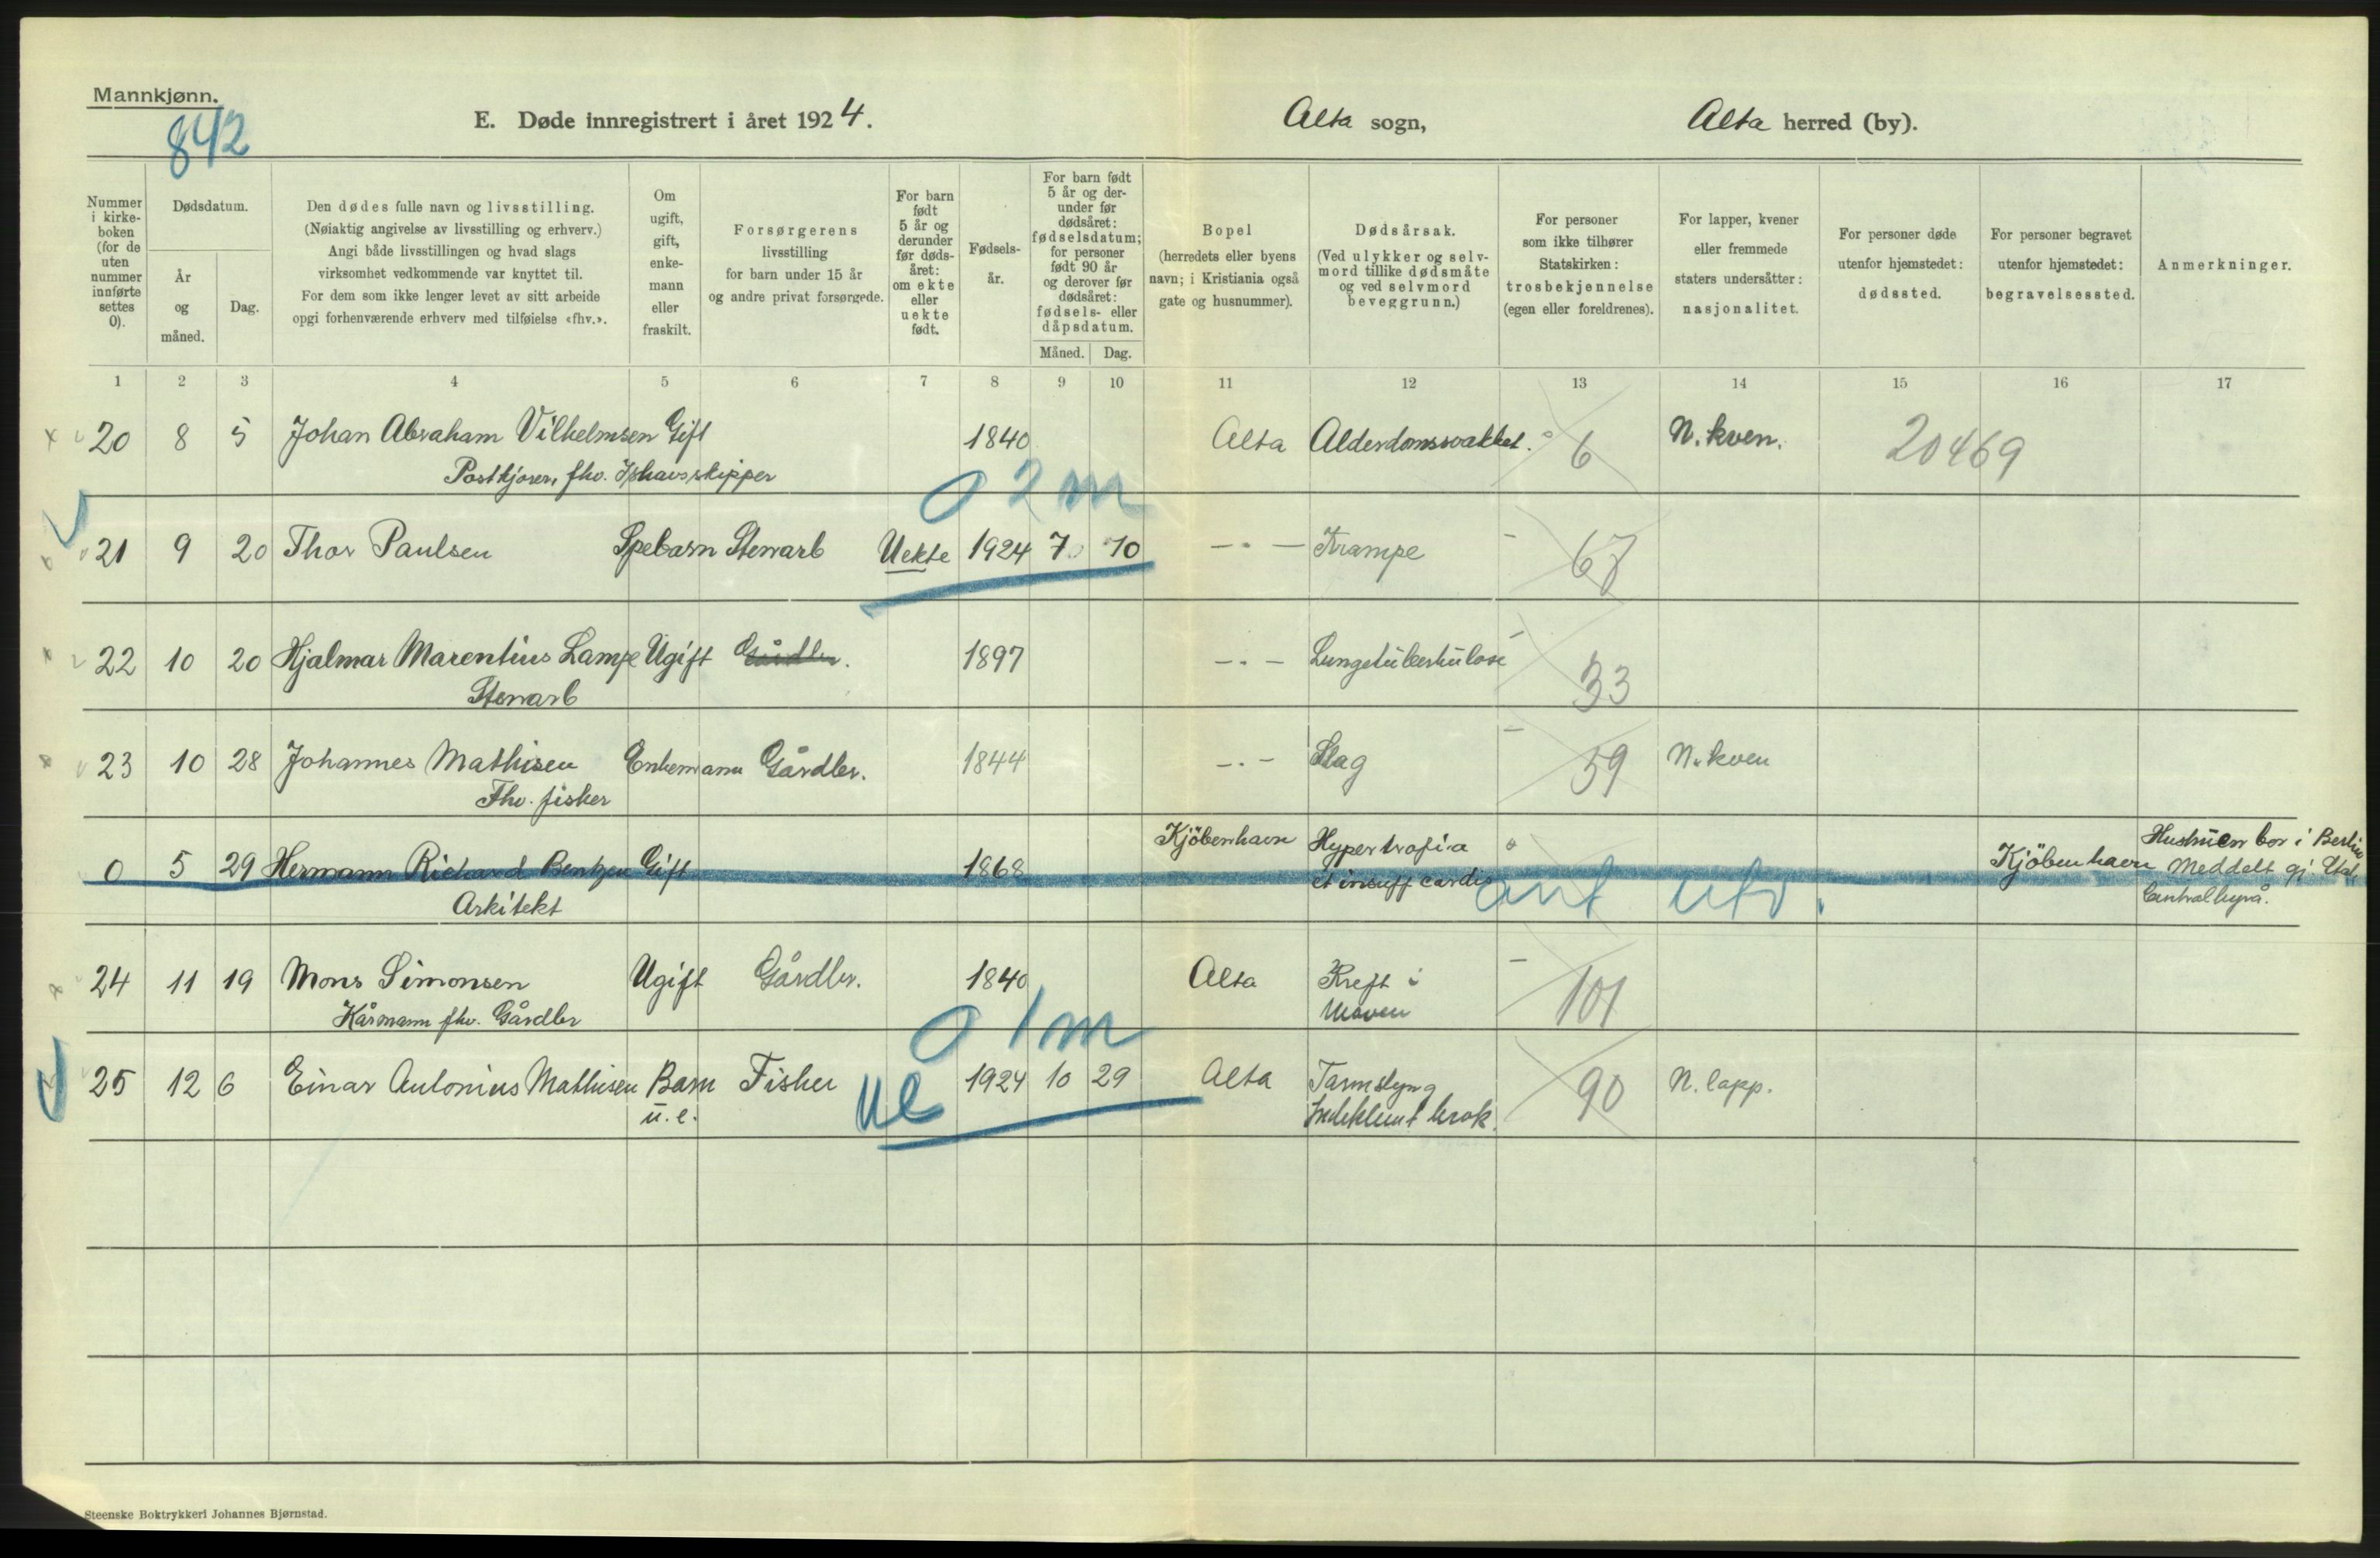 Mannkjønn.
842
E. Døde innregistrert i året 1924.
Alta sogn,
Alta herred (by).
Nummer i kirke- boken (for de uten nummer innførte settes 0).
Dødsdatum.
År og måned.
Dag.
Den dødes fulle navn og livsstilling.
(Nøiaktig angivelse av livsstilling og erhverv.)
Angi både livsstillingen og hvad slags
virksomhet vedkommende var knyttet til.
For dem som ikke lenger levet av sitt arbeide
opgi forhenværende erhverv med tilføielse «fhv.».
Om ugift, gift, enke- mann eller fraskilt.
Forsørgerens
livsstilling
for barn under 15 år
og andre privat forsørgede.
For barn født 5 år og derunder før døds- året: om ekte eller uekte født.
Fødsels- år.
For barn født 5 år og der- under før dødsåret: fødselsdatum; for personer født 90 år og derover før dødsåret: fødsels- eller dåpsdatum.
Måned.
Dag.
Bopel
(herredets eller byens
navn; i Kristiania også
gate og husnummer).
Dødsårsak.
(Ved ulykker og selv-
mord tillike dødsmåte
og ved selvmord
beveggrunn.)
For personer
som ikke tilhører
Statskirken:
trosbekjennelse
(egen eller foreldrenes).
For lapper, kvener
eller fremmede
staters undersåtter:
nasjonalitet.
For personer døde
utenfor hjemstedet:
dødssted.
For personer begravet
utenfor hjemstedet:
begravelsessted.
Anmerkninger.
1 2 3 4 5 6 7 8 9 10 11 12 13 14 15 16 17
20 8 5 Johan Abraham Vilhelmsen Gift 1840 Alta Alderdomssvakhet. 6 N. kven. 20469
Postkjører, fhv. Ishavsskipper
0 2 m
21 9 20 Thor Paulsen Spebarn Stenarb Uekte 1924 7 10 — " — Krampe 67
22 10 20 Hjalmar Marentius Lampe Ugift Gårdbr. 1897 — " — Lungetuberkulose 33
Stenarb
23 10 28 Johannes Mathisen Enkemann Gårdbr. 1844 — " — Slag 59 N. kven
Fhv. fisker
0 5 29 Hermann Richard Bentzen Gift 1868 Kjöbenhavn Hypertrofia Kjöbenhavn Hustruen bor i Berlin
Arkitekt et insuff cordis ant utv. Meddelt gj. Stat.
Centralbyrå.
24 11 19 Mons Simonsen Ugift Gårdbr. 1840 Alta Kreft i 101
Kårmann fhv. Gårdbr maven
0 1 m
25 12 6 Einar Antonius Mathisen Barn Fisker ue 1924 10 29 Alta Tarmslyng 90 N. lapp.
u. e. Indeklemt brok.
Steenske Boktrykkeri Johannes Bjørnstad.